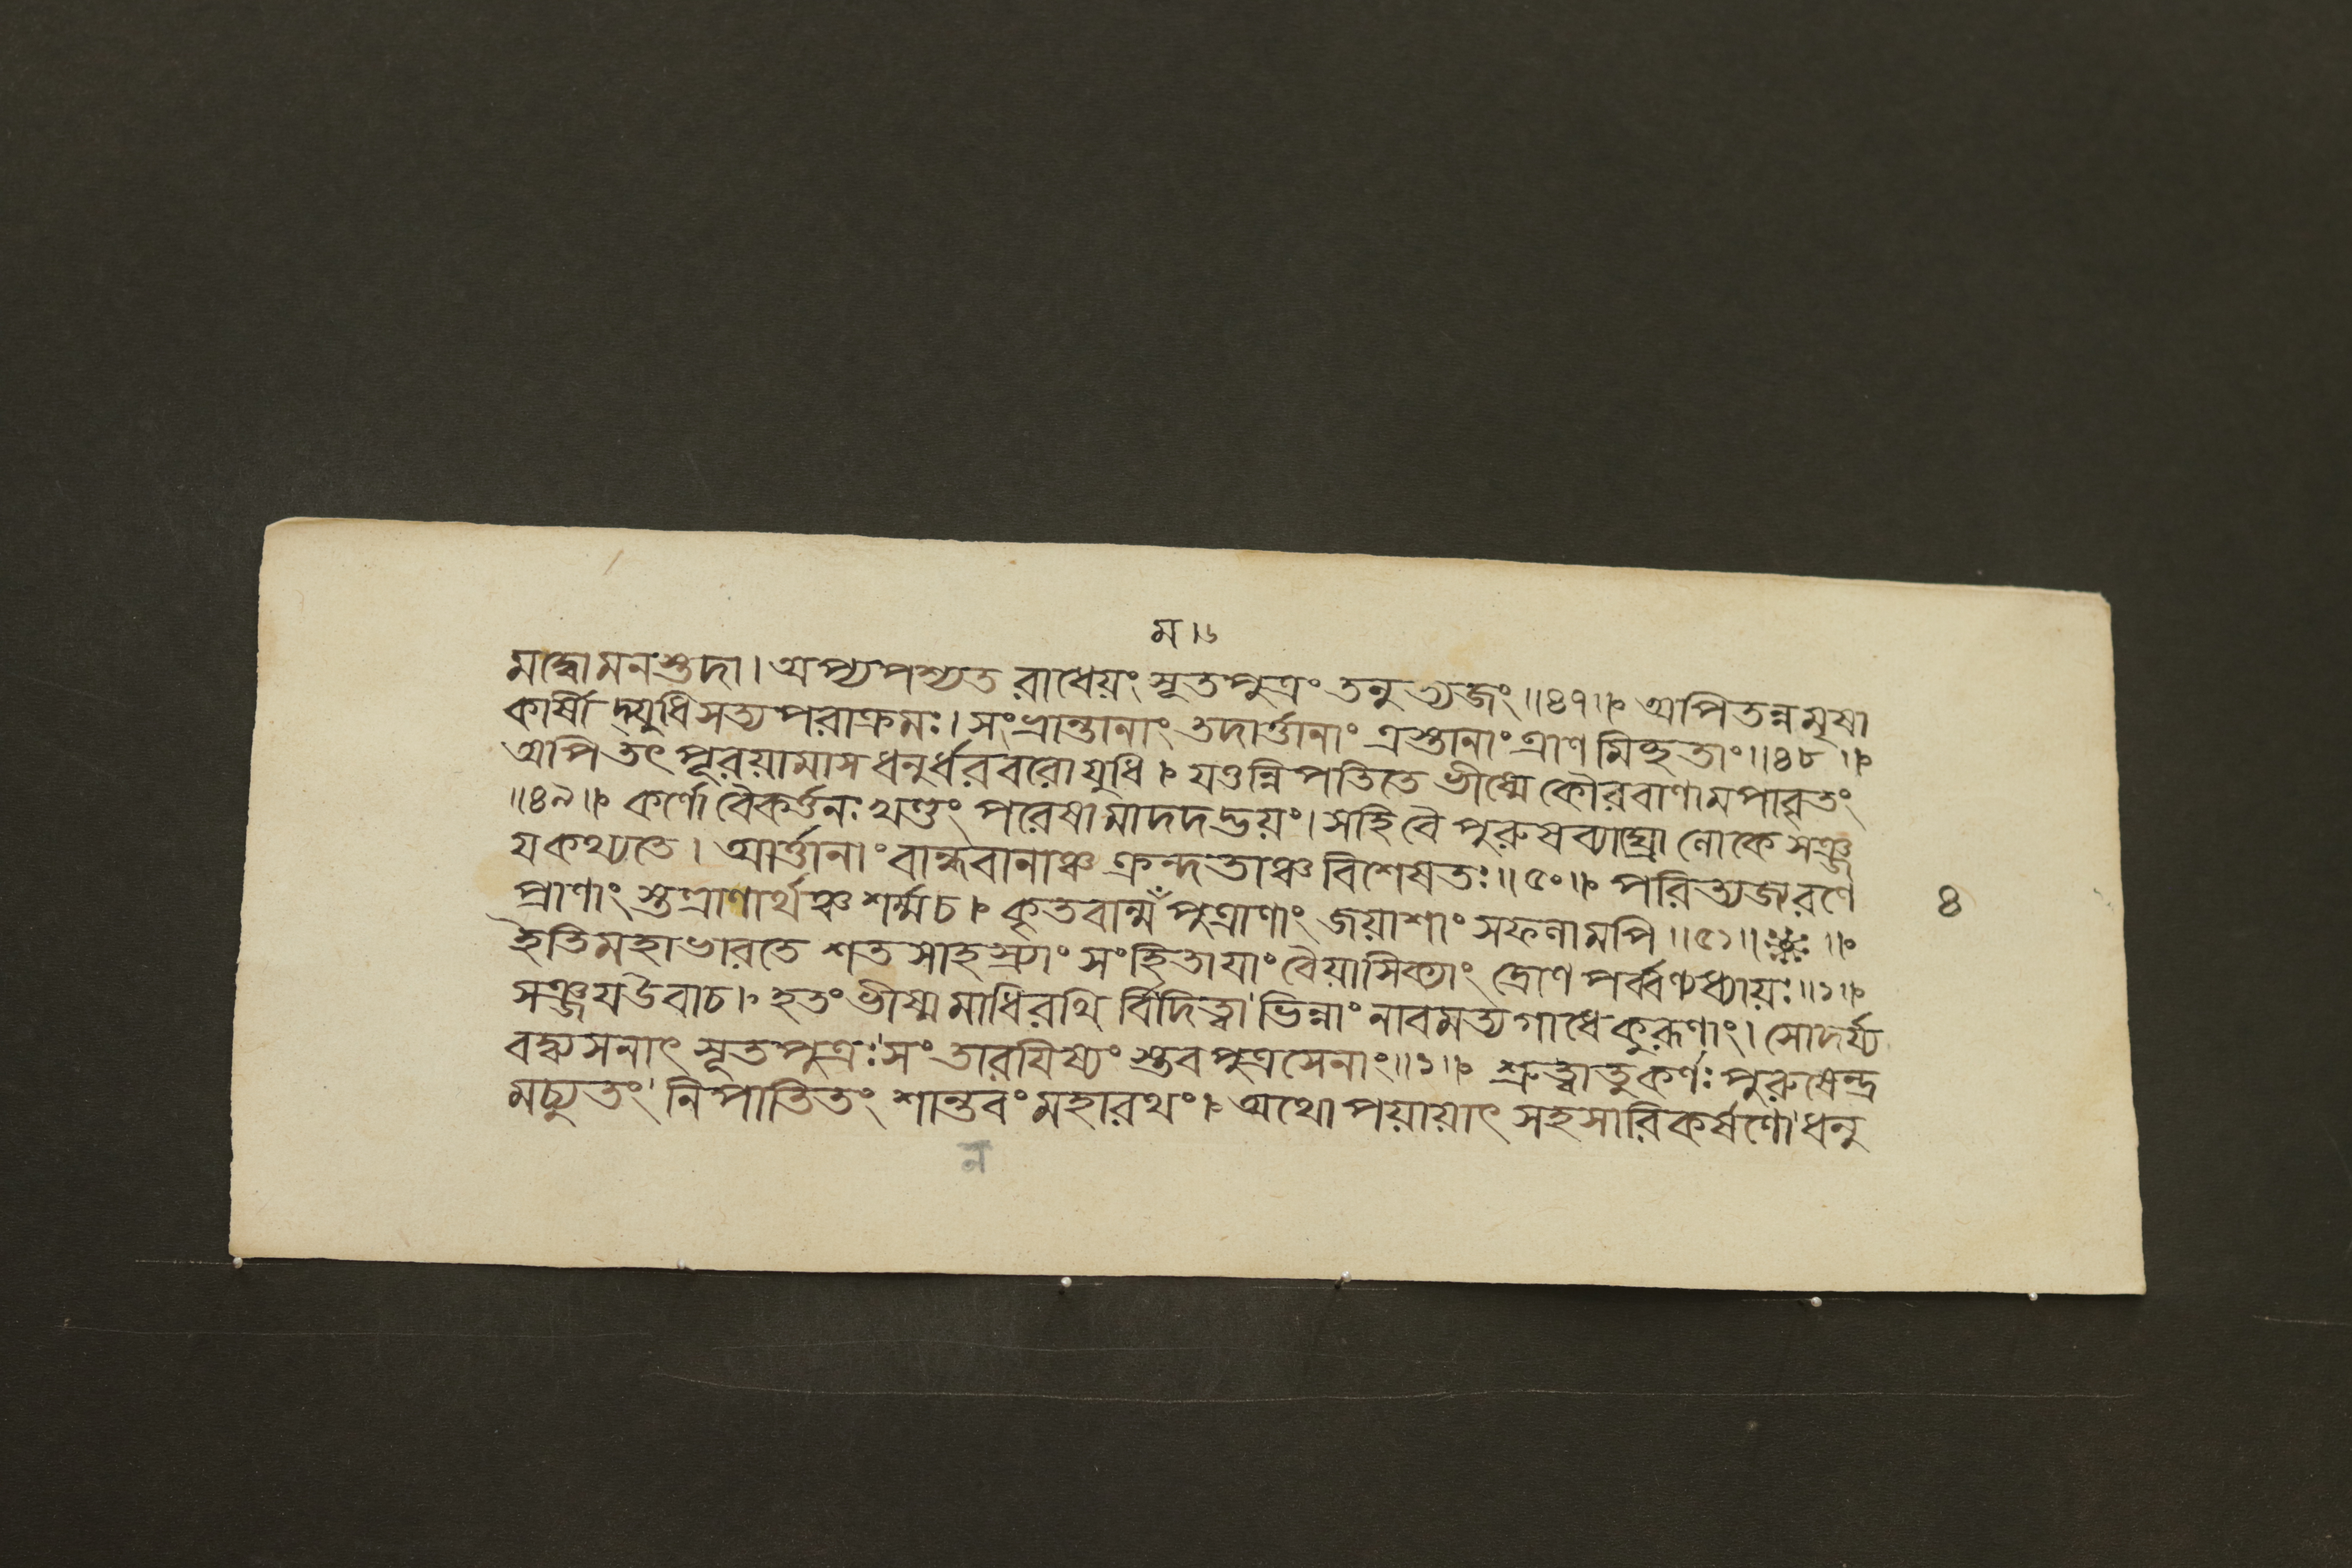 ম।৬
মদ্ধো মনস্তদা। অপ্যপশ্যত রাধেয়ং সূতপুত্রং তনুত্যজং॥৪৭॥ অপিতন্নমৃষা
কার্ষীদ্যুধিসত্যপরাক্রমঃ। সংভ্রান্তানাং তদার্ত্তানাং ত্রস্তানাং ত্রাণমিচ্ছতাং॥৪৮॥
অপি তৎ পূরয়ামাস ধনুর্ধরবরো যুধি। যত্তন্নিপতিতে ভীষ্মে কৌরবাণামপাবৃতং
॥৪৯॥ কর্ণো বৈকর্ত্তনঃ খণ্ডং পরেষামাদদদ্ভয়ং। সহি বৈ পুরুষব্যাঘ্রা লোকে সঞ্জ
য কথ্যতে। আর্ত্তানাং বান্ধবানাঞ্চ ক্রন্দতাঞ্চ বিশেষতঃ॥৫০॥ পরিত্যজ্য রণে
প্রাণাং স্তত্রাণার্থঞ্চ শর্ম্ম চ। কৃতবান্মম পুত্রাণাং জয়াশাং সফলামপি॥৫১॥
৪
ইতি মহাভারতে শতসাহস্র্যাং সংহিতায়াং বৈয়াসিক্যাং দ্রোণপর্ব্বণ্যধ্যায়ঃ॥১॥
সঞ্জয উবাচ। হতং ভীষ্মমাধিরথি র্বিদিত্বা ভিন্নাং নাবমত্যগাধে কুরূণাং। সোদর্য্য
বদ্ব্যসনাৎ সূতপুত্রঃ সংতারযিষ্যং স্তব পুত্রসেনাং॥১॥ শ্রুত্বাতু কর্ণঃ পুরুষেন্দ্র
মচ্যুতং নিপাতিতং শান্তবং মহারথং। অথোপয়ায়াৎ সহসারিকর্ষণো ধনু
ন